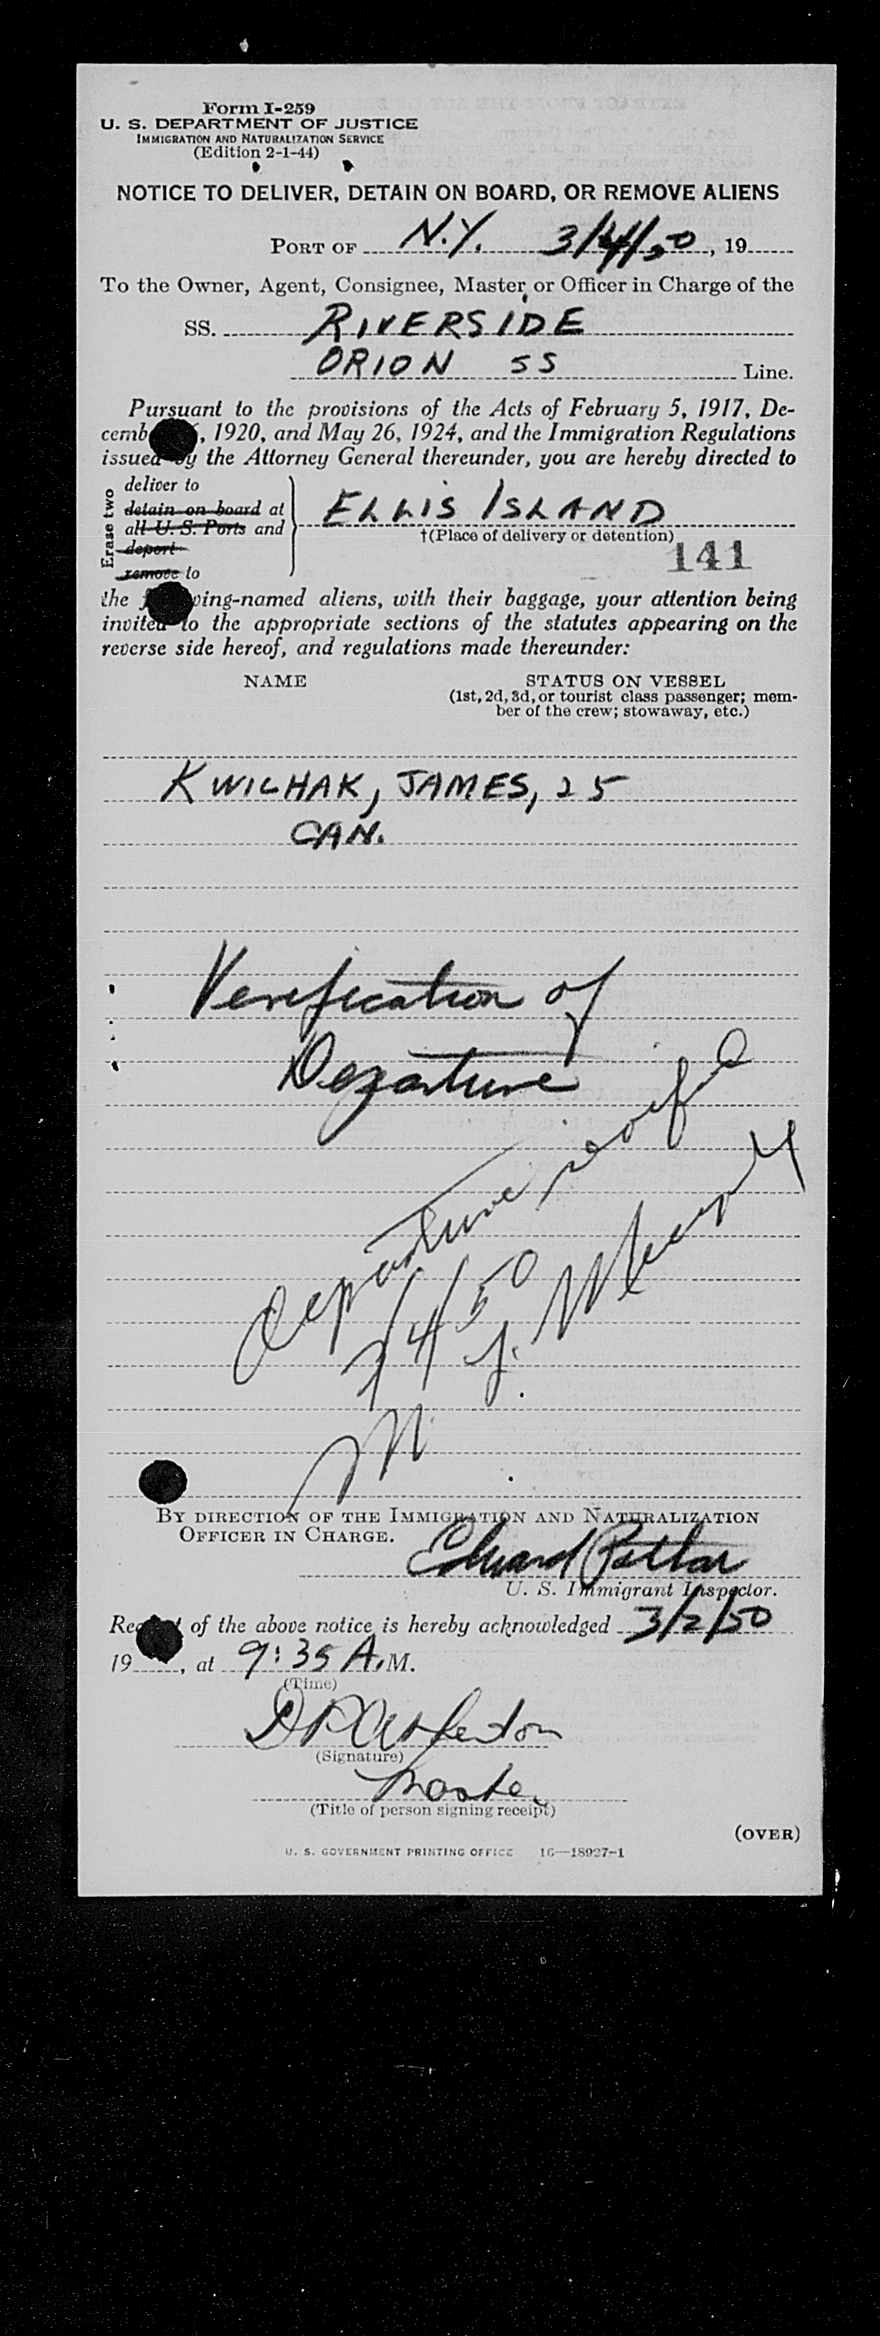 Form I-259
U. S. DEPARTMENT OF JUSTICE
IMMIGRATION AND NATURALIZATION SERVICE
(Edition 2-1-44)
NOTICE TO DELIVER, DETAIN ON BOARD, OR REMOVE ALIENS
PORT OF N.Y. 3/4/50, 19
To the Owner, Agent, Consignee, Master, or Officer in Charge of the
SS. RIVERSIDE
ORION SS Line.
Pursuant to the provisions of the Acts of February 5, 1917, De-
cemb , 1920, and May 26, 1924, and the Immigration Regulations
issued by the Attorney General thereunder, you are hereby directed to
Erase two
deliver to
detain on board at
all U. S. Ports and
deport
remove to
ELLIS ISLAND
†(Place of delivery or detention)
141
the f wing-named aliens, with their baggage, your attention being
invited to the appropriate sections of the statutes appearing on the
reverse side hereof, and regulations made thereunder:
NAME STATUS ON VESSEL
(1st, 2d, 3d, or tourist class passenger; mem-
ber of the crew; stowaway, etc.)
KWILHAK, JAMES, 25
CAN.
Verification of
Departure
Departure verified
3/4/50 J.
BY DIRECTION OF THE IMMIGRATION AND NATURALIZATION
OFFICER IN CHARGE.
Edward
U. S. Immigrant Inspector.
Rec t of the above notice is hereby acknowledged 3/2/50
19 , at 9:35 A.M.
(Time)
(Signature)
Master
(Title of person signing receipt)
(OVER)
U. S. GOVERNMENT PRINTING OFFICE 16—18927-1